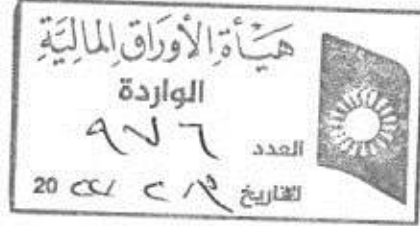 هَيْأَةِ الأَوْرَاقِ المَالِيَّةِ
الواردة
العدد ٩٧٦
التاريخ ٣ / ٢ / ٢٢ 20